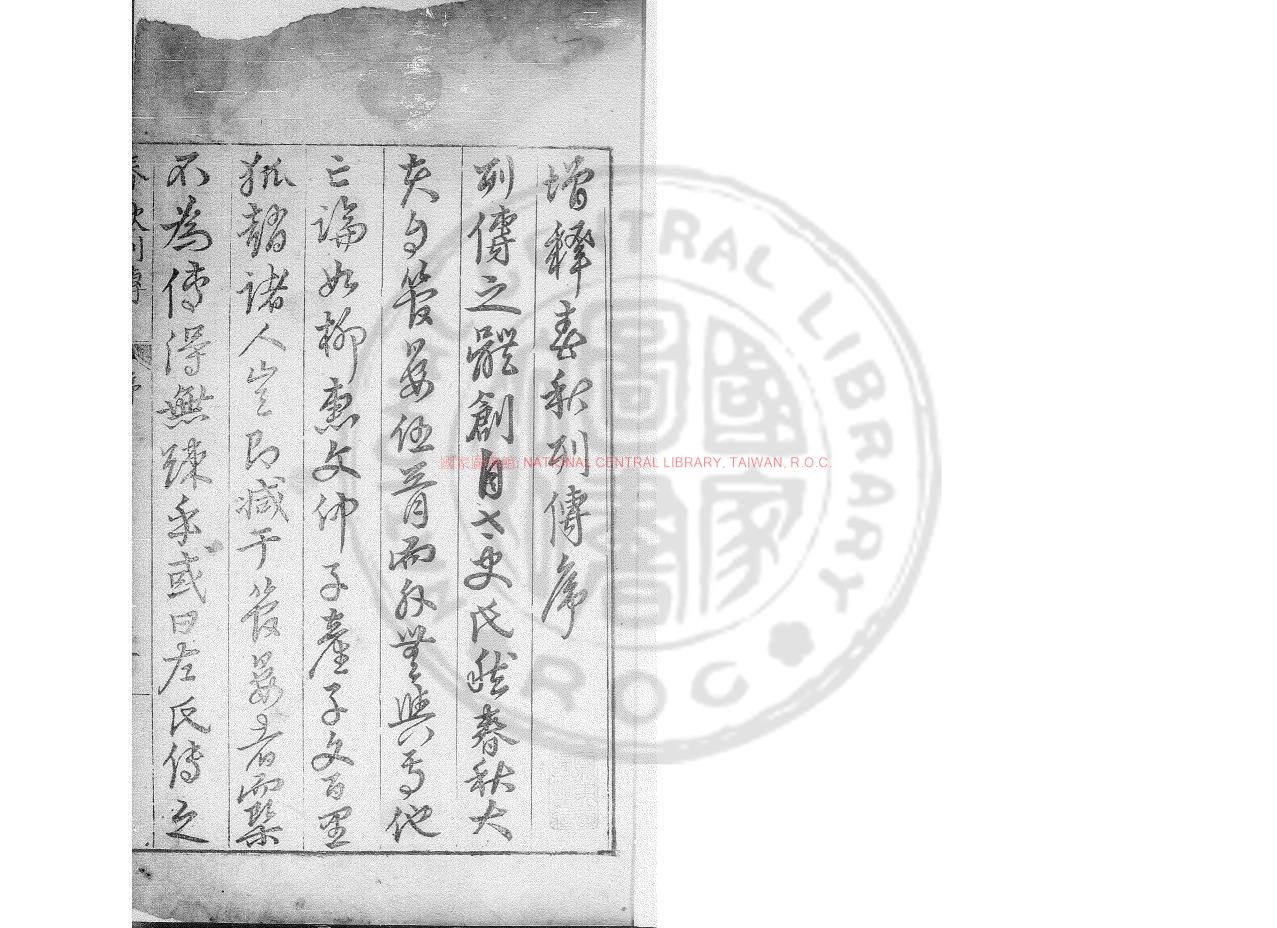 增釋春秋列傳序
列傳之體創自太史氏然春秋大
夫自管晏伍胥而外無與焉他
亡論如柳惠文仲子產子文百里
狐趙諸人豈即減于管晏者而槩
不為傳得無踈乎或曰左氏傳之
春秋列傳
國家圖書館, NATIONAL CENTRAL LIBRARY, TAIWAN, R.O.C.
CENTRAL LIBRARY
R O C